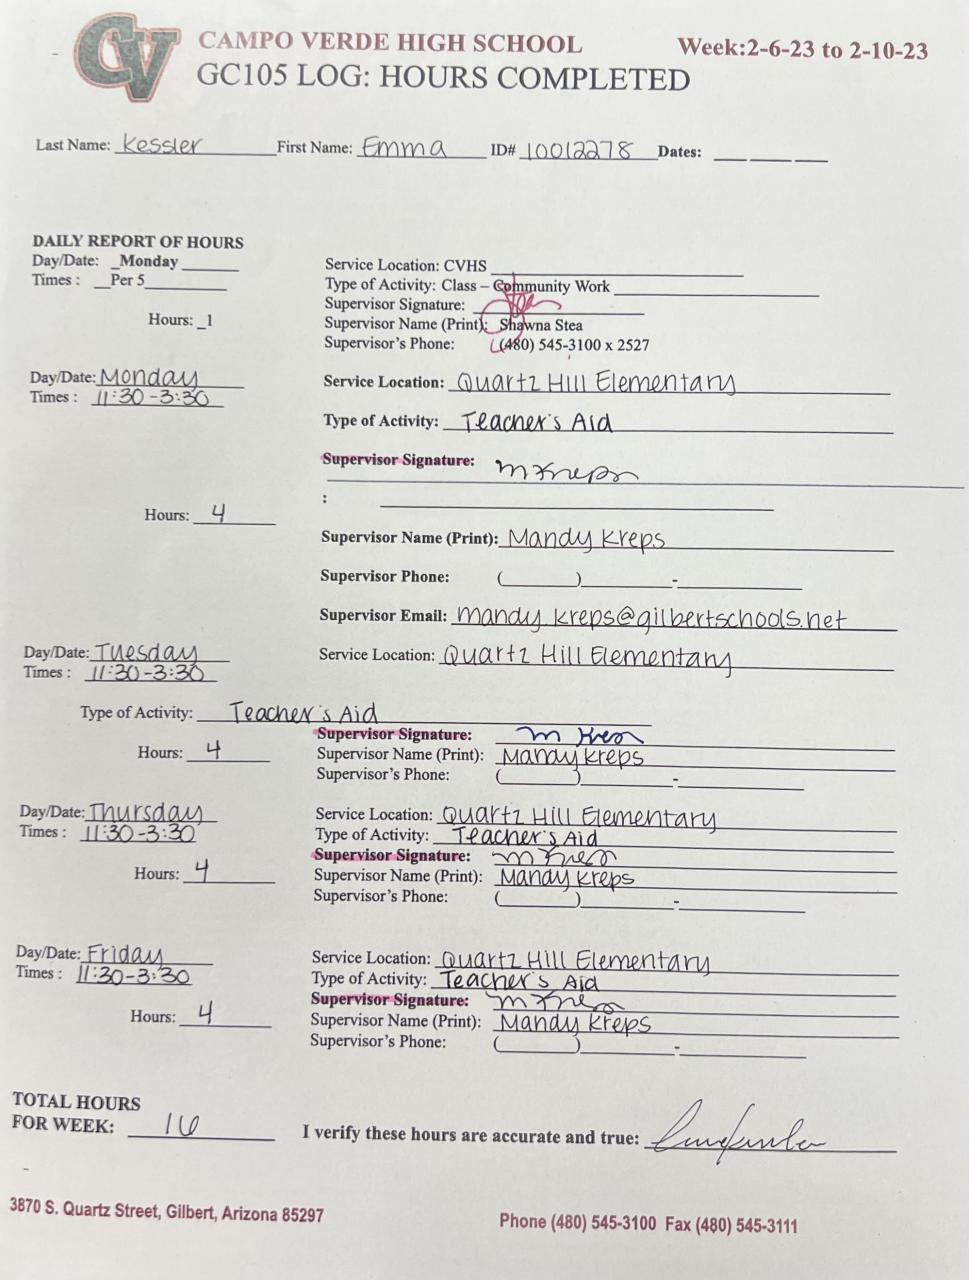 CV
CAMPO VERDE HIGH SCHOOL Week:2-6-23 to 2-10-23
GC105 LOG: HOURS COMPLETED
Last Name: Kessler First Name: Emma ID# 10012278 Dates: ____ ____ ____
DAILY REPORT OF HOURS
Day/Date: _Monday ______
Times : __Per 5________
Hours: _1
Service Location: CVHS
Type of Activity: Class – Community Work
Supervisor Signature:
Supervisor Name (Print): Shawna Stea
Supervisor's Phone: (480) 545-3100 x 2527
Day/Date: Monday
Times : 11:30-3:30
Hours: 4
Service Location: Quartz Hill Elementary
Type of Activity: Teacher's Aid
Supervisor Signature: M Kreps
:
Supervisor Name (Print): Mandy Kreps
Supervisor Phone: (________)_________-____________
Supervisor Email: mandy.kreps@gilbertschools.net
Day/Date: Tuesday
Times : 11:30-3:30
Service Location: Quartz Hill Elementary
Type of Activity: Teacher's Aid
Hours: 4
Supervisor Signature: M Kreps
Supervisor Name (Print): Mandy Kreps
Supervisor's Phone: (________)_________-____________
Day/Date: Thursday
Times : 11:30-3:30
Hours: 4
Service Location: Quartz Hill Elementary
Type of Activity: Teacher's Aid
Supervisor Signature: M Kreps
Supervisor Name (Print): Mandy Kreps
Supervisor's Phone: (________)_________-____________
Day/Date: Friday
Times : 11:30-3:30
Hours: 4
Service Location: Quartz Hill Elementary
Type of Activity: Teacher's Aid
Supervisor Signature: M Kreps
Supervisor Name (Print): Mandy Kreps
Supervisor's Phone: (________)_________-____________
TOTAL HOURS
FOR WEEK: 16
I verify these hours are accurate and true:
3870 S. Quartz Street, Gilbert, Arizona 85297
Phone (480) 545-3100 Fax (480) 545-3111